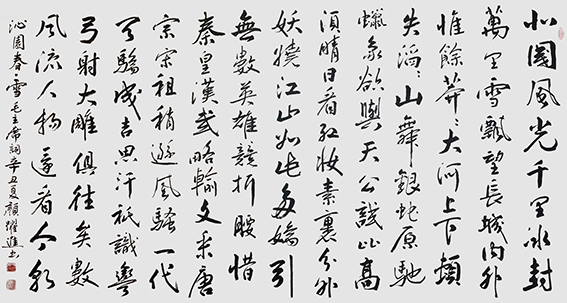 北國風光千里冰封
萬里雪飄望長城內外
惟餘莽〻大河上下頓
失滔〻山舞銀蛇原馳
蠟象欲與天公試比高
須晴日看紅妝素裹分外
妖嬈江山如此多嬌引
無數英雄競折腰惜
秦皇漢武略輸文采唐
宗宋祖稍遜風騷一代
天驕成吉思汗祇識彎
弓射大雕俱往矣數
風流人物還看今朝
沁園春雪毛主席詞辛丑夏顏耀進書